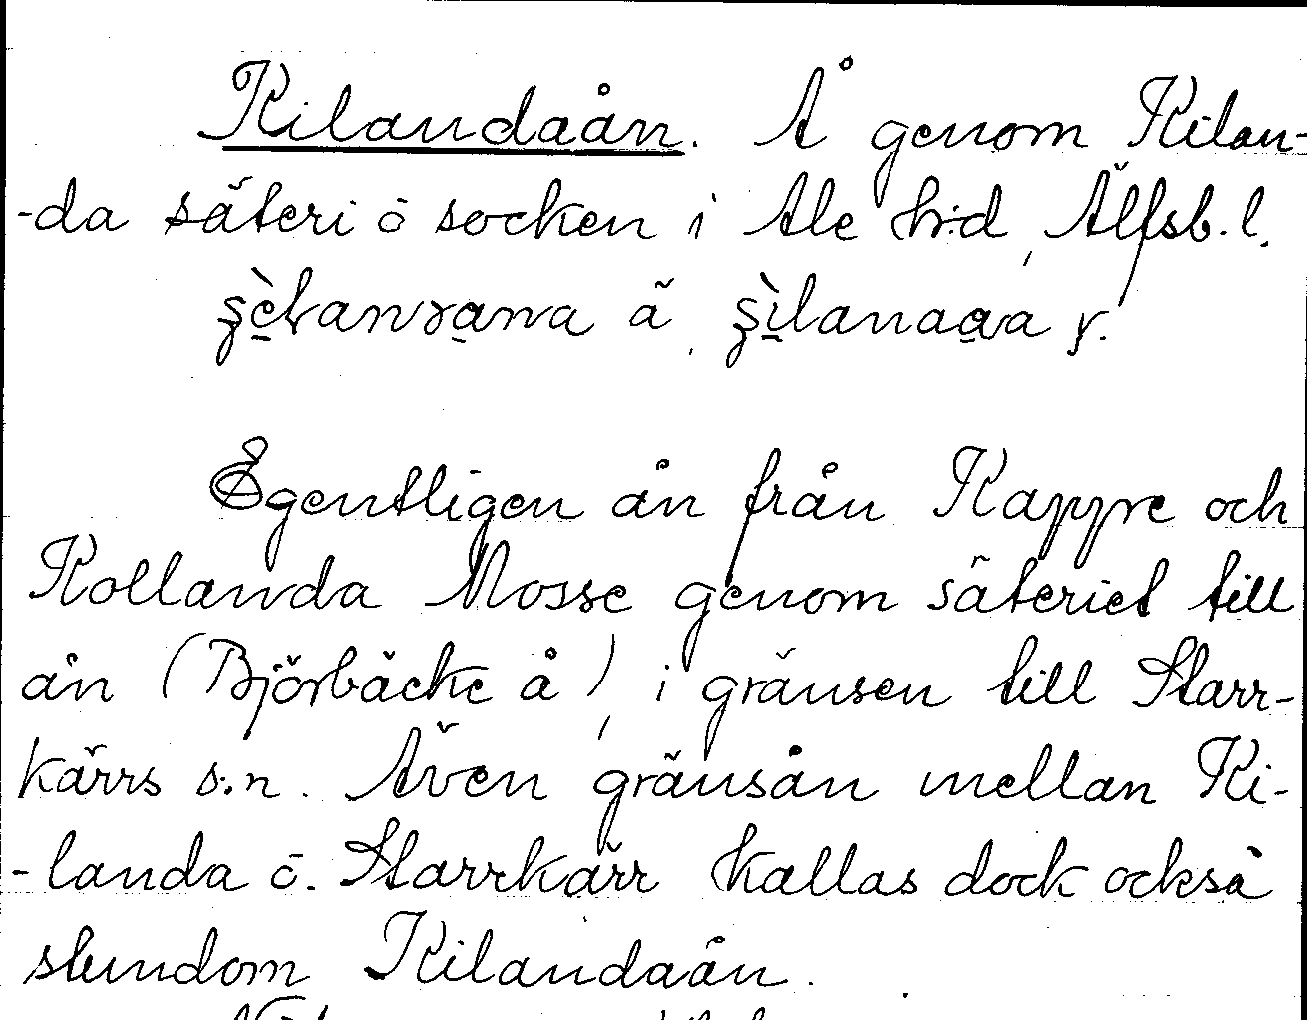 Kilandaån. Å genom Kilan-
-da säteri ō socken i Ale h:d, Älfsb. l.
Egentligen ån från Kappre och
Kollanda Mosse genom säteriet till
ån (Björbäcke å), i gränsen till Starr-
kärrs s:n. Även gränsån mellan Ki-
-landa ō. Starrkärr kallas dock också
stundom Kilandaån.